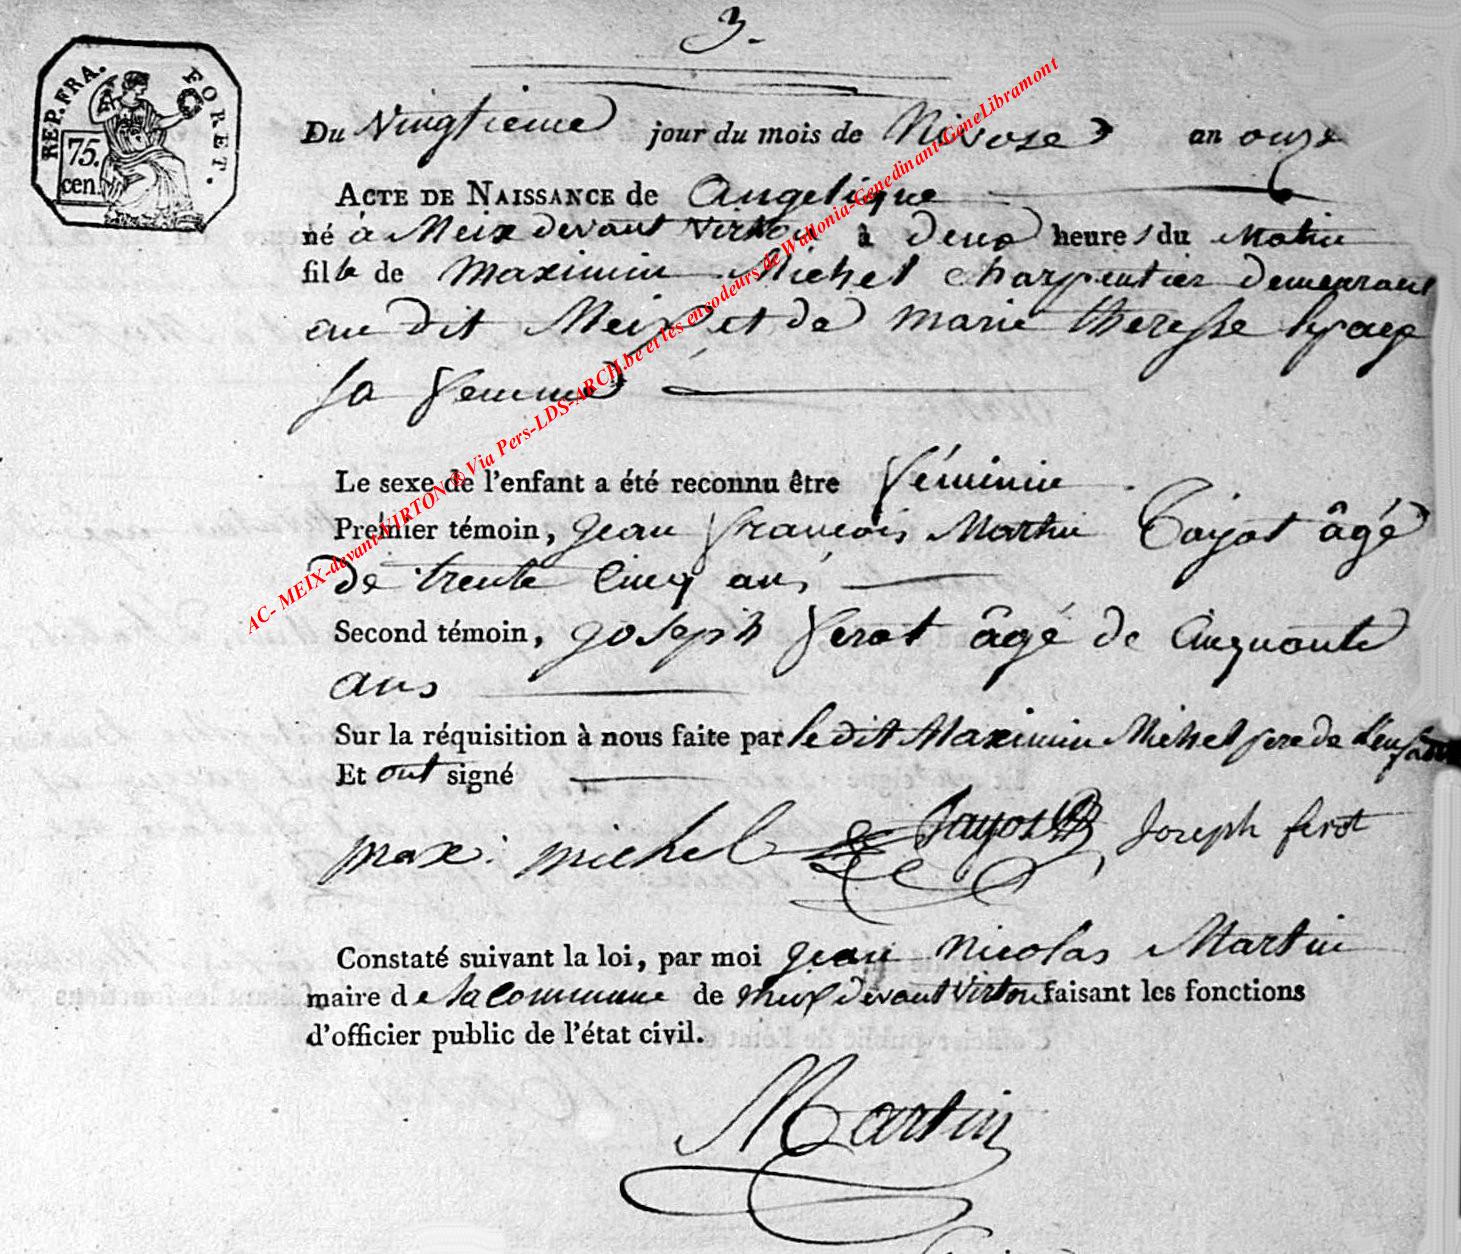 3.
REP. FRA. FORET.
75. cen.
Du Vingtieme jour du mois de Nivose an onze
ACTE DE NAISSANCE de Angelique
né à Meix devant Virton à deux heures du Matin
fille de Maximin Michel charpentier demeurant
au dit Meix et de marie theresse
sa femme
Le sexe de l'enfant a été reconnu être féminin
Premier témoin, jean francois Martin Tayot âgé
de trente cinq ans
Second témoin, joseph ferot âgé de cinquante
ans
Sur la réquisition à nous faite par le dit Maximin Michel pere de l'enfant
Et ont signé
max: michel Tayot Joseph ferot
Constaté suivant la loi, par moi jean nicolas Martin
maire de la commune de meix devant Virton faisant les fonctions
d'officier public de l'état civil.
Martin
AC- MEIX-devant-VIRTON ® Via Pers-LDS-ARCH.be et les encodeurs de Wallonia-Genedinant-GeneLibramont